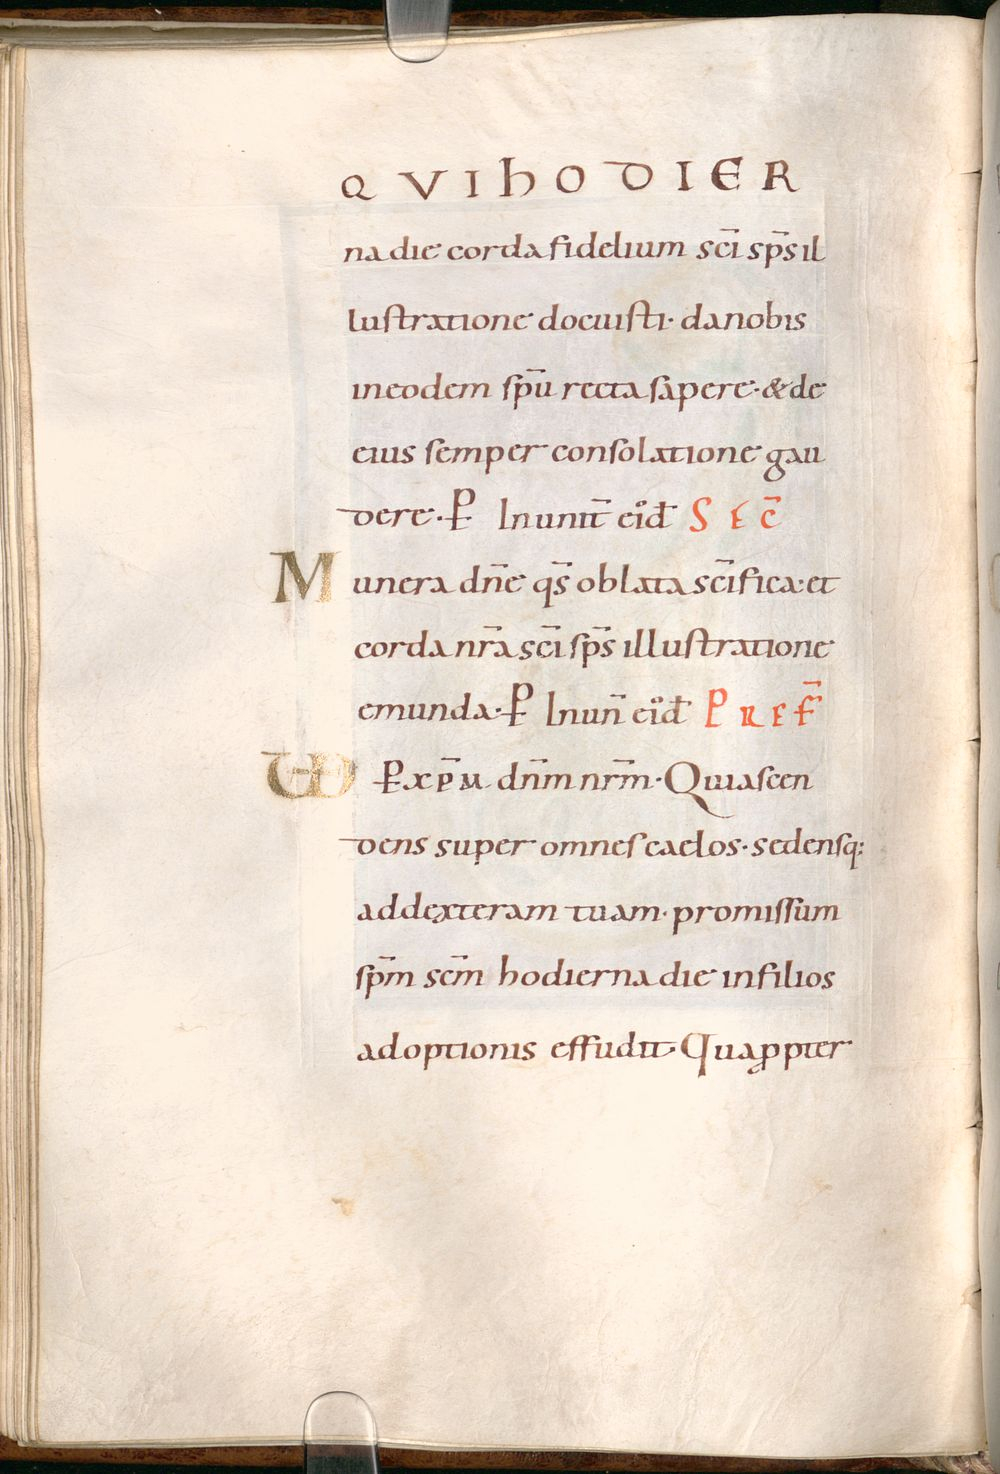 QVI HODIER
na die corda fidelium sc̄i sp̄s il
lustratione docuisti· da nobis
in eodem sp̄u recta sapere· & de
eius semper consolatione gau
dere· P̲ In unit̄ eiꝰđ SEC̄
Munera dn̄e qs̄ oblata sc̄ifica· et
corda nr̄a sc̄i sp̄s illustratione
emunda· P̲ In un̄ eiꝰđ PREF̄
VD P̲ xp̄m dn̄m nr̄m· Qui ascen
dens super omnes caelos· sedensq;
ad dexteram tuam· promissum
sp̄m sc̄m hodierna die in filios
adoptionis effudit· Quaꝓpter